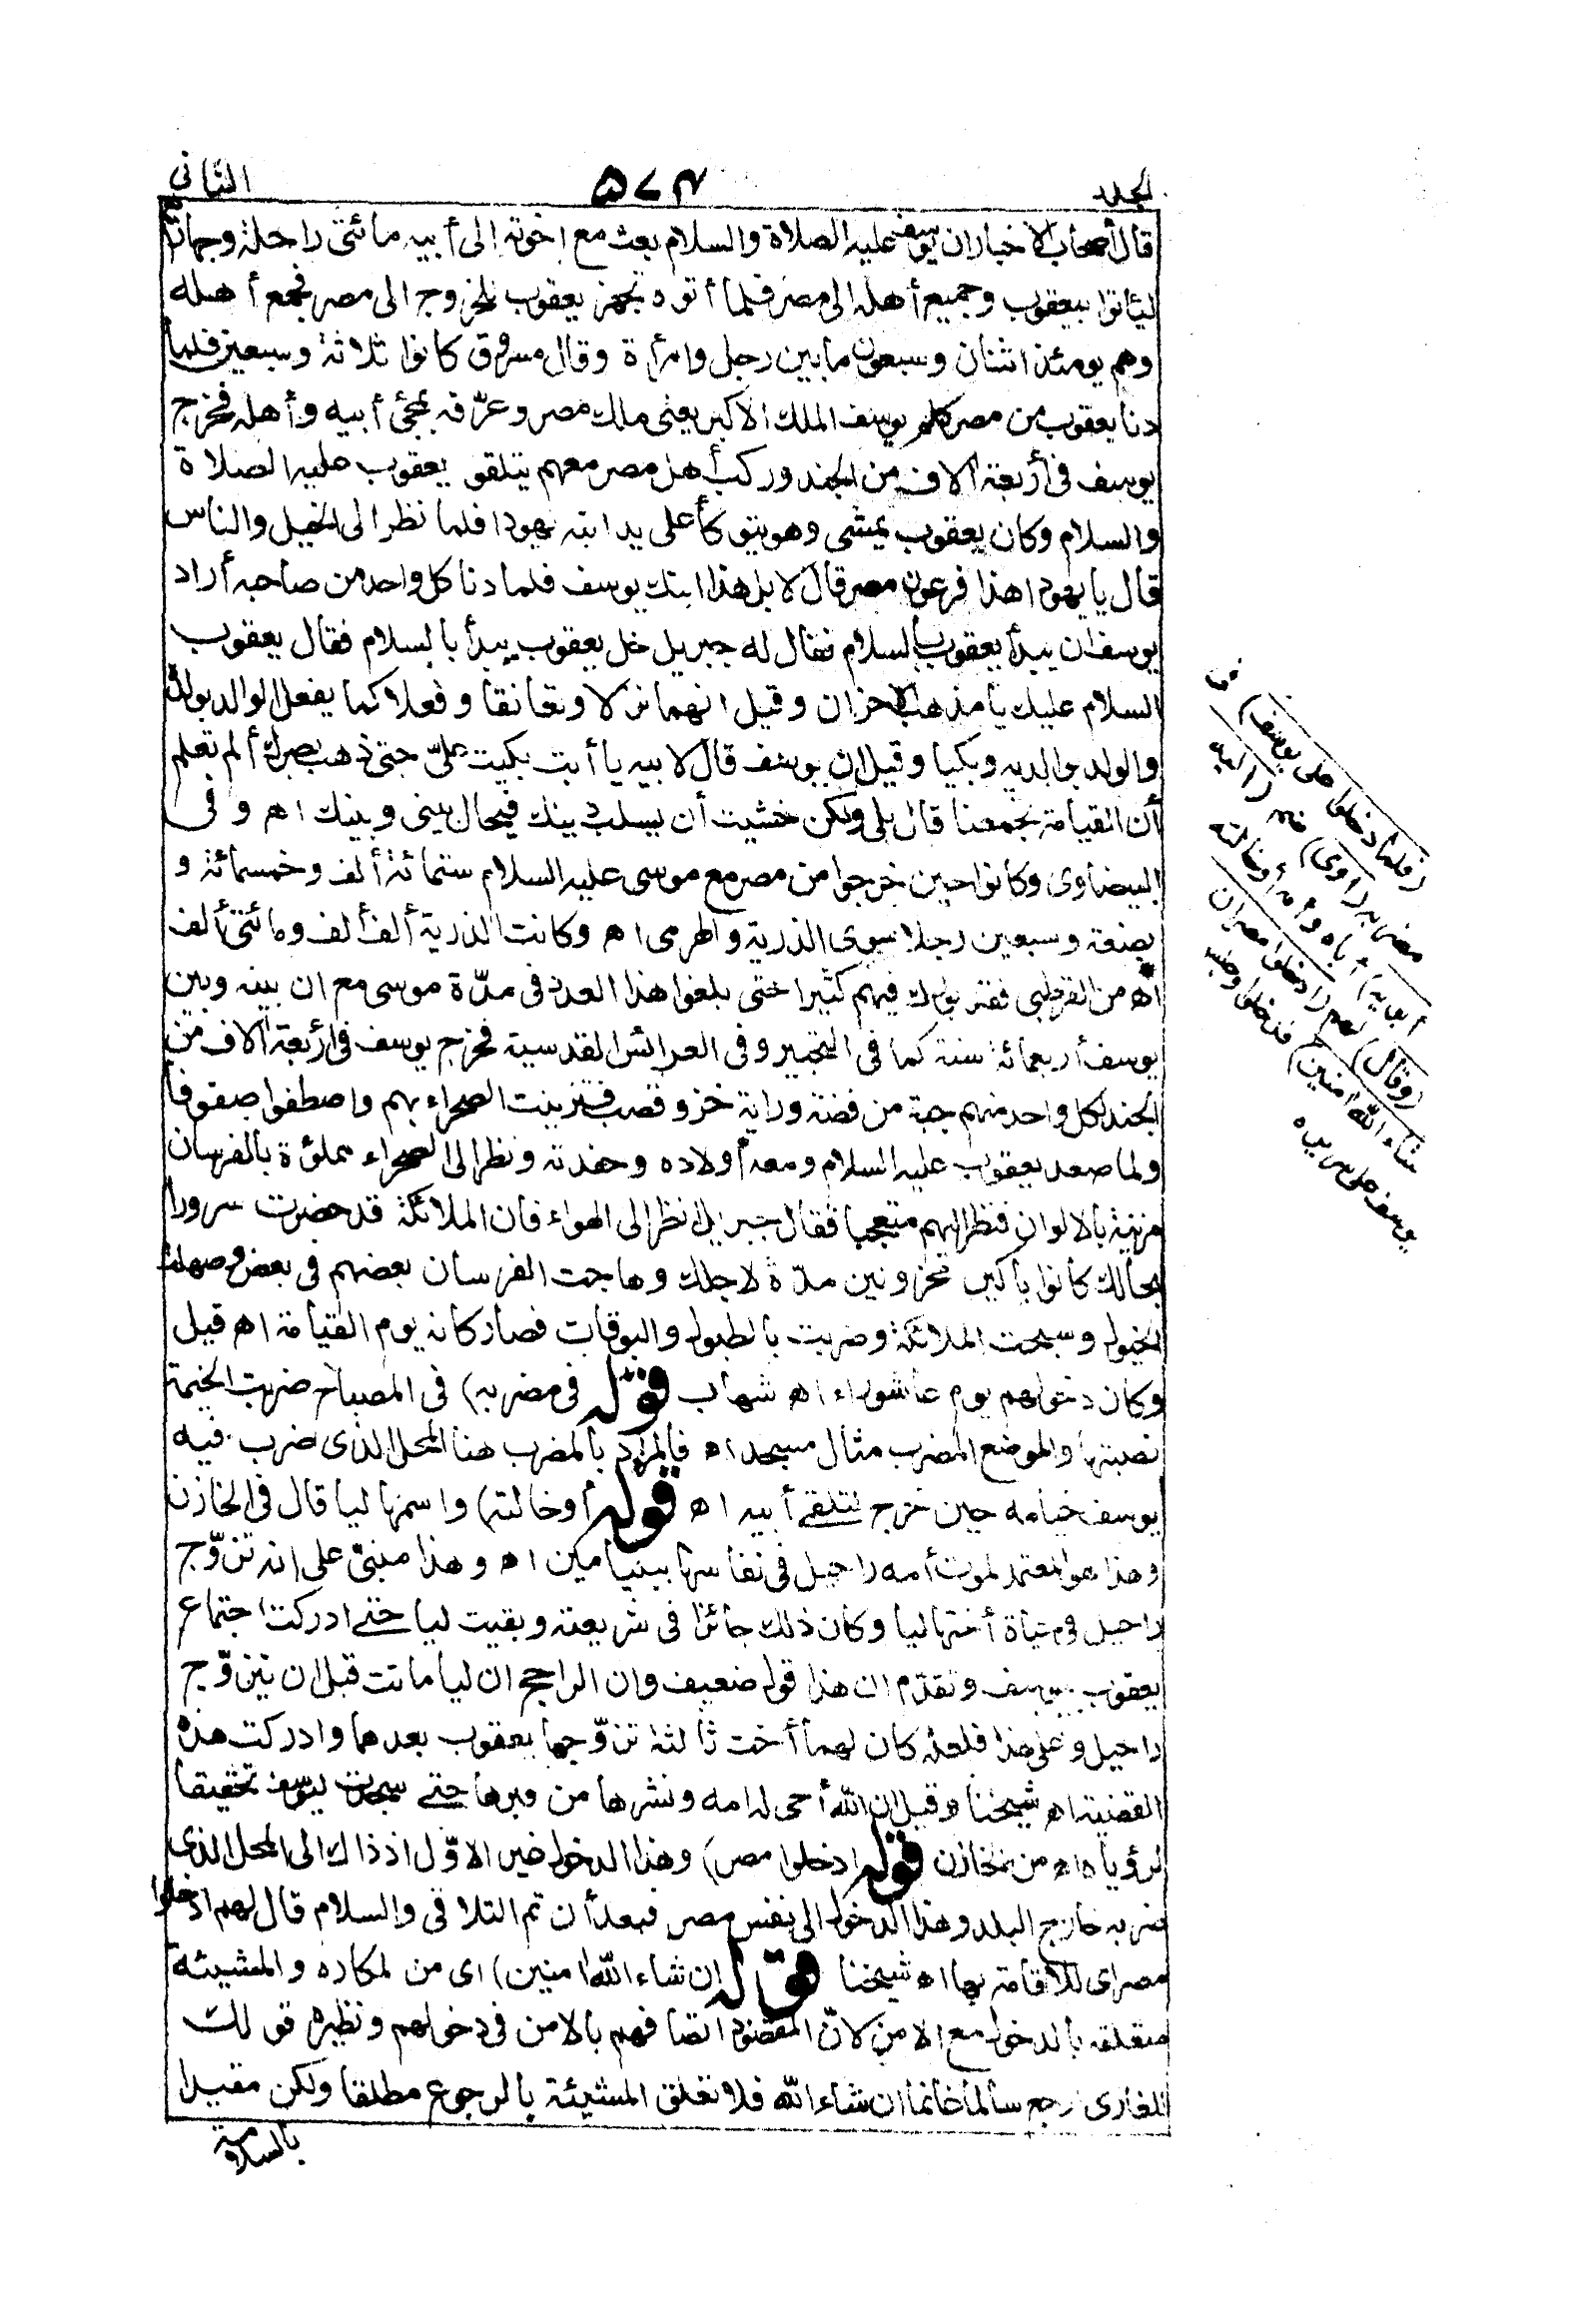 الجلد ٥٧٤ الثاني
قال أصحاب الاخبار ان يوسف عليه الصلاة والسلام بعث مع اخوته إلى أبيه مائتى راحلة وجهازا
ليأتوا بيعقوب وجميع أهله الى مصر فلما أتوه تجهز يعقوب للخروج الى مصر فجمع أهله
وهم يومئذ اثنان وسبعون مابين رجل وامرأة وقال مسروق كانوا ثلاثة وسبعين فلما
دنا يعقوب من مصر كلم يوسف الملك الاكبر يعنى ملك مصر وعرّفه بمجئ أبيه وأهله فخرج
يوسف فى أربعة آلاف من الجند وركب أهل مصر معهم يتلقو يعقوب عليه الصلاة
والسلام وكان يعقوب يمشى وهو يتوكأ على يد ابنه يهودا فلما نظر الى الخيل والناس
قال يا يهودا هذا فرعون مصر قال لا بل هذا ابنك يوسف فلما دنا كل واحد من صاحبه أراد
يوسف ان يبدأ يعقوب بالسلام فقال له جبريل خل يعقوب يبدأ بالسلام فقال يعقوب
السلام عليك يا مذهب الاحزان وقيل انهما نزلا وتعانقا وفعلا كما يفعل الوالد بولده
والولد بوالديه وبكيا وقيل ان يوسف قال لابيه يا أبت بكيت علىّ حتى ذهب بصرك ألم تعلم
أن القيامة تجمعنا قال بلى ولكن خشيت أن يسلب دينك فيحال بينى وبينك اه وفى
البيضاوى وكانوا حين خرجوا من مصر مع موسى عليه السلام ستمائة ألف وخمسمائة و
بضعة وسبعين رجلا سوى الذرية والهرمى اه وكانت الذرية ألف ألف ومائتى ألف
اه من القرطبى فقد بورك فيهم كثيرا حتى بلغوا هذا العدد فى مدّة موسى مع ان بينه وبين
يوسف أربعمائة سنة كما فى التحبير وفى العرائس القدسية فخرج يوسف فى أربعة آلاف من
الجند لكل واحد منهم جبة من فضة وراية خز وقصب فتزينت الصحراء بهم واصطفوا صفوفا
ولما صعد يعقوب عليه السلام ومعه أولاده وحفدته ونظر الى الصحراء مملوءة بالفرسان
مزينة بالالوان فنظر اليهم متعجبا فقال جبرايل انظر الى الهواء فان الملائكة قد حضرت سرورا
بحالك كانوا باكين محزونين مدّة لاجلك وهاجت الفرسان بعضهم فى بعض وصهلت
الخيول وسبحت الملائكة وضربت بالطبول والبوقات فصار كانه يوم القيامة اه قيل
وكان دخولهم يوم عاشوراء اه شهاب قوله فى مضربه) فى المصباح ضربت الخيمة
نصبتها والموضع المضرب مثال مسجد اه فالمراد بالمضرب هنا المحل الذى ضرب فيه
يوسف خيامه حين خرج لتلقى أبيه اه قوله أوخالته) واسمها ليا قال فى الخازن
وهذا هو المعتمد لموت أمه راحيل فى نفاسها ببنيامين اه وهذا مبنىّ على انه تزوّج
راحيل فى حياة أختها ليا وكان ذلك جائزا فى شريعته وبقيت ليا حتى ادركت اجتماع
يعقوب بيوسف وتقدّم ان هذا قول ضعيف وان الراجح ان ليا ماتت قبل ان يتزوّج
راحيل وعلى هذا فلعله كان لهما أخت ثالثة تزوّجها يعقوب بعدهما وادركت هذه
القضية اه شيخنا وقيل ان الله أحى له امه ونشرها من قبرها حتى سجدت ليوسف تحقيقا
لرؤياه اه من الخازن قوله ادخلوا مصر) وهذا الدخول غير الاوّل اذ ذاك الى المحل الذى
ضربه خارج البلد وهذا الدخول الى نفس مصر فبعد أن تم التلاقى والسلام قال لهم ادخلوا
مصر اى للاقامة بها اه شيخنا قوله ان شاء الله امنين) اى من المكاره والمشيئة
متعلقة بالدخول مع الامن لانّ المقصود اتصافهم بالامن فى دخولهم ونظيره قولك
للغازى ارجع سالما غانما ان شاء الله فلا تعلق المشيئة بالرجوع مطلقا ولكن مقيدا
بالسلامة
(فلما دخلوا على يوسف) فى
مضربه (آوى) ضم (اليه
أبويه) أباه وأمه أوخالته
(وقال) لهم (ادخلوا مصر ان
شاء الله امنين) فدخلوا وجلس
يوسف على سريره